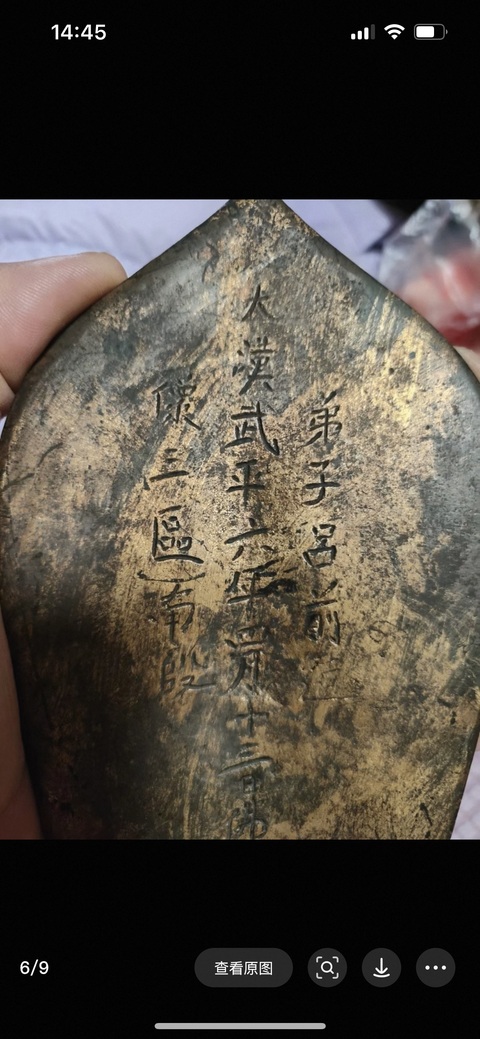 14:45
弟子呂前
大漢武平六年四月十三日佛
像三區
6/9
查看原图